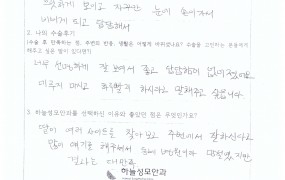 뜻하게 보이고 자꾸만 눈이 손이가서
비비게 되고 답답해서
2. 나의 수술후기
(수술 후 만족하는 점, 주변의 반응, 생활은 어떻게 바뀌었나요? 수술을 고민하는 분들에게
해주고 싶은 말이 있다면?)
너무 선명하게 잘 보여서 좋고 답답함이 없어졌어요.
미루지 마시고 하루빨리 하시라고 말해주고 싶습니다.
3. 하늘성모안과를 선택하신 이유와 좋았던 점은 무엇인가요?
딸이 여러 사이트를 찾아보고 주변에서 잘하신다고
많이 얘기를 해주셔서
결과는 대만족
하늘성모안과